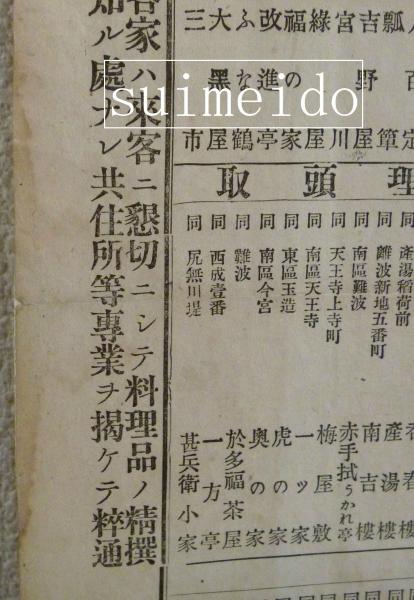 suimeido
瓢簞
吉野屋
宮川
綠屋
福の家
改進亭
ふな鶴
大黑屋
三市
理頭取
同 產湯稻荷前 產湯樓
同 難波新地五番町 南吉樓
同 南區難波 赤手拭うかれ亭
同 天王寺上寺町 梅屋敷
同 南區天王寺 一ツ家
同 東區玉造 虎の家
同 南區今宮 奥の家
同 難波 於多福茶屋
同 西成壹番 一方亭
同 尻無川堤 甚兵衛小家
家ハ來客ニ懇切ニシテ料理品ノ精撰
知ル處ナレ共住所等專業ヲ揭ケテ粹通